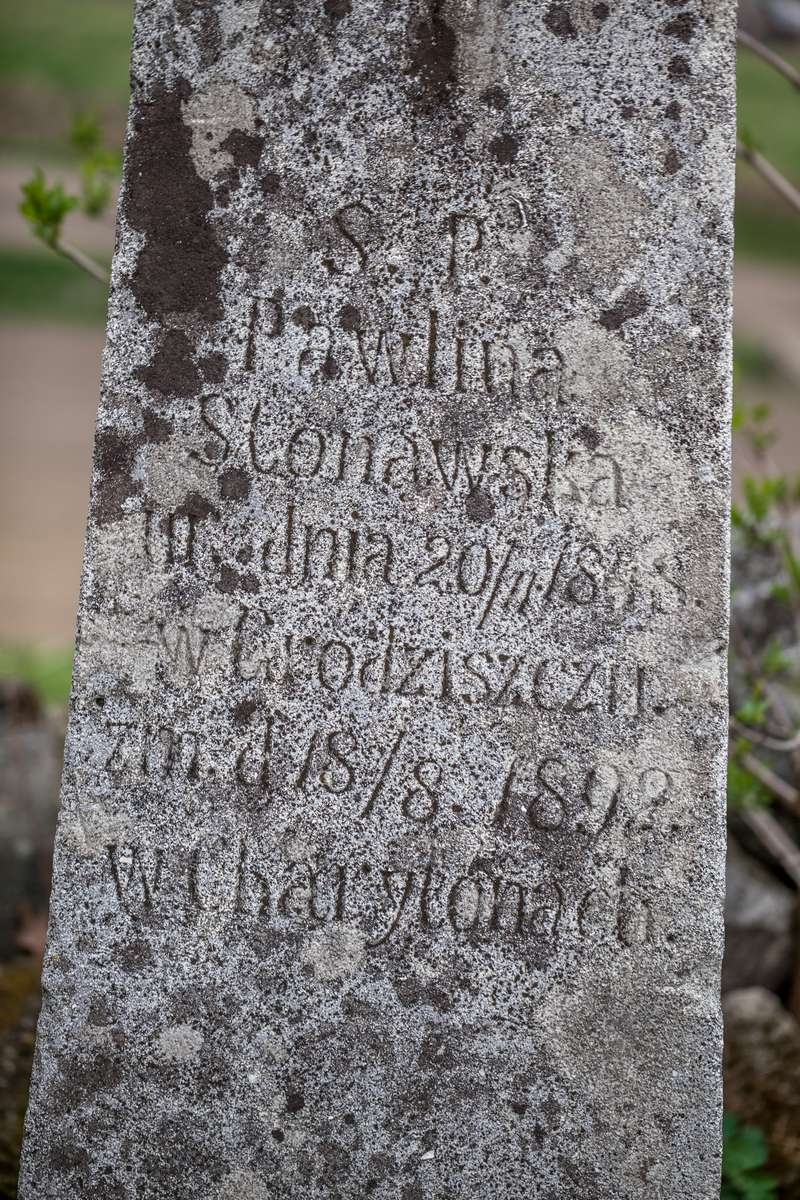 S. p.
Pawlina
Stonawska
ur. dnia 20/11.1848
w Grodziszczu.
zm. d 18/8. 1892.
w Charytonach.